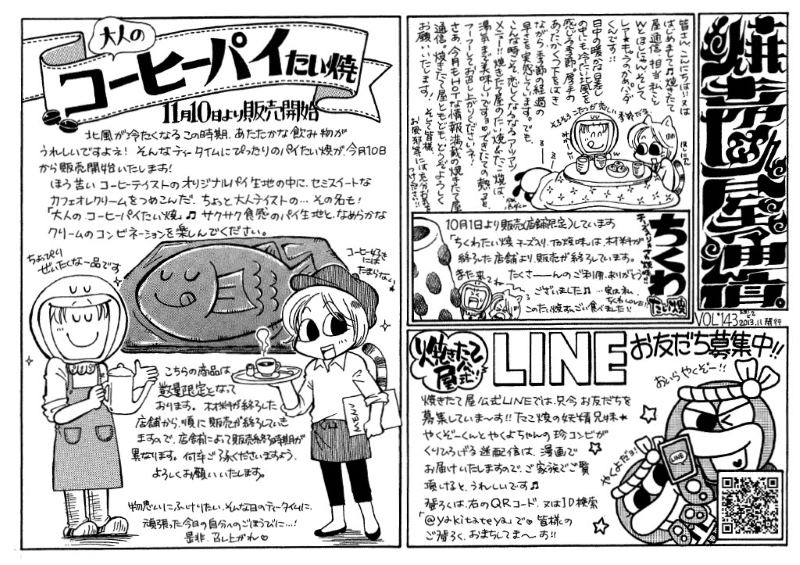 大人の
コーヒーパイたい焼
11月10日より販売開始
北風が冷たくなるこの時期、あたたかな飲み物が
うれしいですよネ! そんなティータイムにぴったりのパイたい焼が、今月10日
から販売開始いたします!
ほろ苦いコーヒーテイストのオリジナルパイ生地の中に、セミスイートな
カフェオレクリームをつめこんだ、ちょっと大人テイストの…その名も!
「大人のコーヒーパイたい焼」♫ サクサク食感のパイ生地と、なめらかな
クリームのコンビネーションを楽しんでください。
ちょっぴり
ぜいたくな一品です
コーヒー好き
にはたまらない
こちらの商品は
数量限定となって
おります。材料が終了した
店舗から、順に販売が終了していき
ますので、店舗によって販売終了時期が
異なります。何卒ご了承くださいますよう、
よろしくお願いいたします。
MENU
物思いにふけりたい、そんな日のティータイムに、
頑張った今日の自分へのごほうびに…!
是非、召し上がれ♡
焼きたて屋通信。
VOL.143
2013.11
皆さん、こんにちは!
はじめまして♫焼きたて
屋通信担当、私こと
日中の暖かな日差し
の中にも、冷たい北風を
感じる季節。厚手の
あったかくつ下をはき
ながら、季節の経過の
早さを実感しています。でも、
こんな時こそ、恋しくなるアツアツ
メニュー!! 焼きたて屋のたい焼やたこ焼は、
湯気まで美味しいです!! 焼きたての熱々を、
フーフーしてお召し上がりくださいネ!
さあ、今月もHOTな情報満載の焼きたて屋
通信。焼きたて屋ともども、どうぞよろしく
お願いいたします!
10月1日より販売(店舗限定)しています
「ちくわたい焼 チーズ入り、70焼味」は、材料が
終了した店舗より、販売が終了します。
また来てね
たくさーーんのご利用、ありがとう
ございました♫
このたい焼すんごい食べました!!
ちくわ
たい焼
焼きたて屋公式!
LINE
お友だち募集中!!
焼きたて屋公式LINEでは、只今お友だちを
募集していま〜す!! たこ焼の妖精兄妹★
やくぞーくんとやくよちゃんの珍コンビが
くりひろげる迷配信は、漫画で
お届けいたしますので、ご家族でご覧
頂けると、うれしいです♫
登ろくは、右のQRコード、又はID検索
「@yakitateya」で◎皆様の
ご登ろく、おまちしてま〜す!!
おいらやくぞー!!
やくよだヨ!
LINE